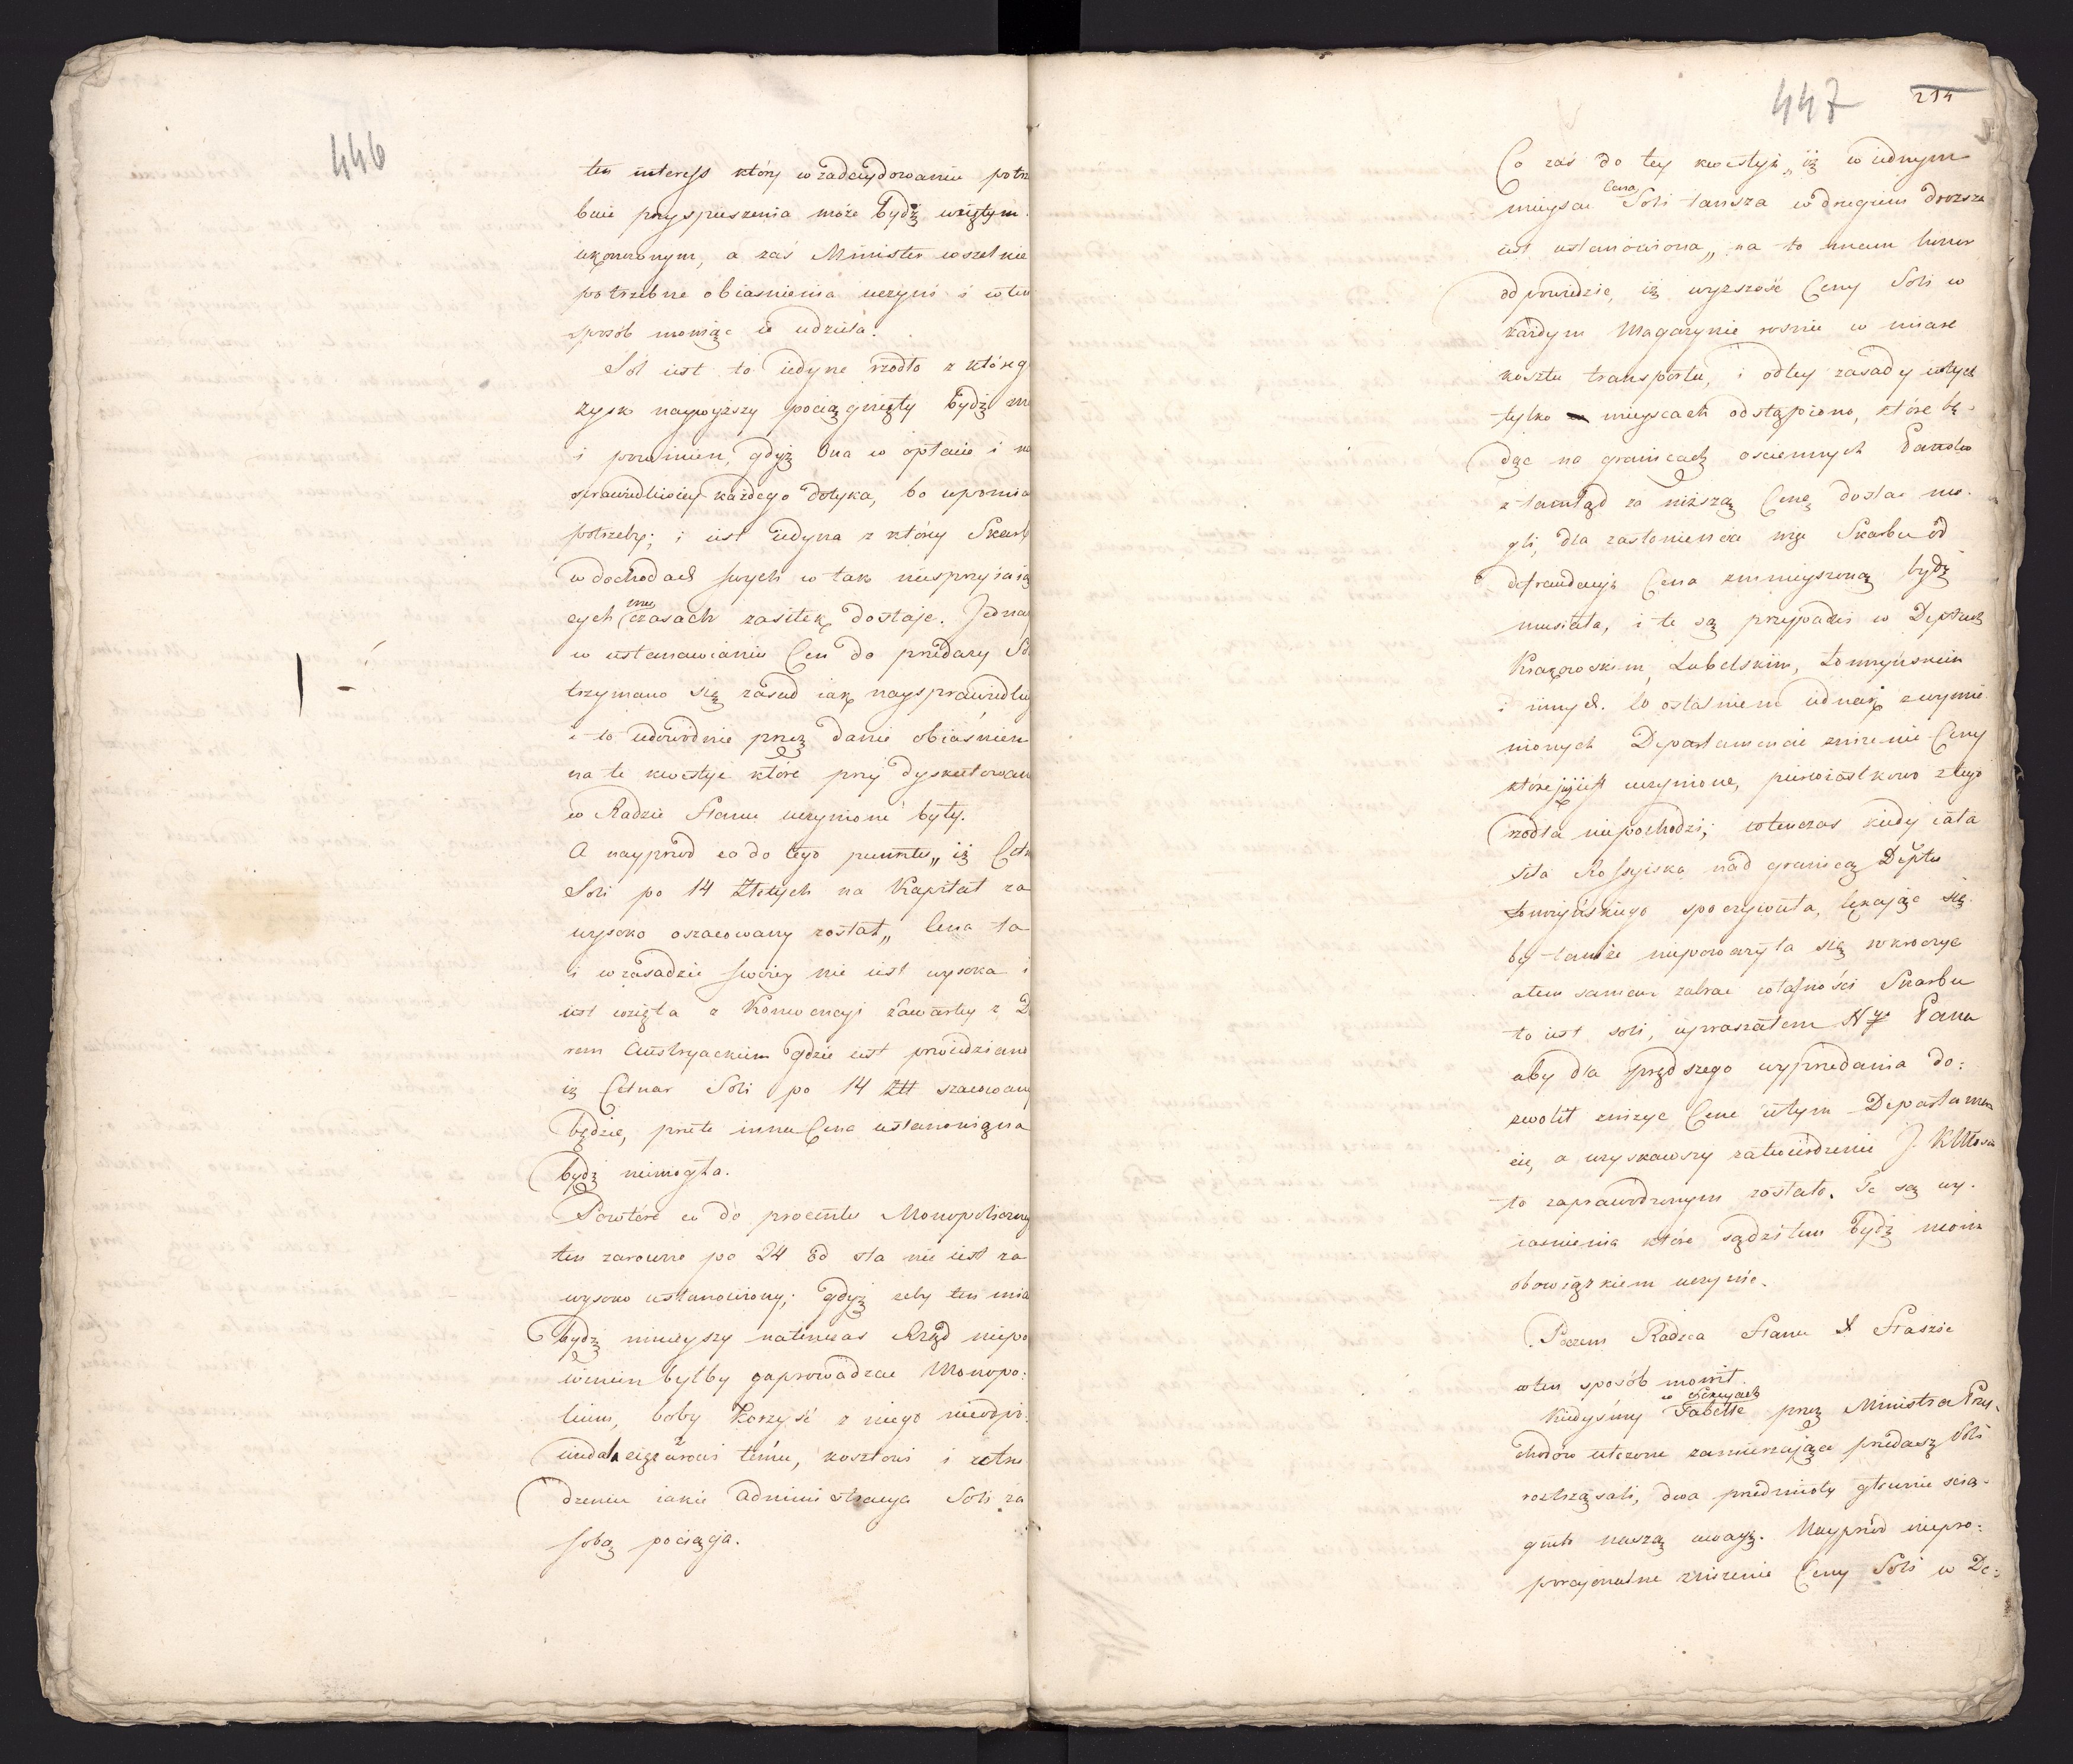 446
ten interess który w zadecydowaniu potrze
buie przyspieszenia może bydź wziętym
ukończonym, a zaś Minister wszelkie
potrzebne obiasnienia uczyni i w ten
sposób mówiąc ie udziela.
Sól iest to iedyne rzódło z któreg
zysk naywyższy pociągnięty bydź
i powinien, gdyż Ona w opłacie i
sprawiedliwiey każdego dotyka, bo
potrzeby; i iest iedyna z który Skarb
w dochodach swych w tak niesprzyiaią
cych czasach zasiłek dostaje. Jednak
w ustanawianiu Cen do przedaży So
trzymano się zasad iak naysprawiedliw
i to udowodnie przez danie obiaśnien
na te kwestye które przy dyskutowan
w Radzie Stanu uczynione były.
A nayprzod co do tego punktu „iż Cetn
Soli po 14 Złotych na Kapitał za
wysoko oszacowany został„ Cena ta
i w zasadzie swoiey nie iest wysoka i
iest wzięta z Konwencyi zawartey z D
rem Austryackim gdzie iest powiedziano
iż Cetnar Soli po 14 Złł szacowany
będzie, przeto inna Cena ustanowiona
bydź niemogła.
Powtóre co do procentu Monopoliczneg
ten zarowno po 24 od sta nie iest za
wysoko ustanowiony; gdyż żeby ten mia
bydź mnieyszy natenczas Rząd niepo
winien byłby zaprowadzac Monopo:
lium, boby korzyść z niego nieodpo:
wiedała ciężarowi temu, kosztowi i zatru
dzeniu iakie Administracya Soli za
sobą pociąga.
447
214
Co zaś do tey kwestyi „iż w iednym
mieyscu Cena Soli tansza w drugiem drozsza
iest ustanowiona„ na to mam honor
odpowiedzie, iż wyższość Ceny Soli w
każdym Magazynie rosnie w miare
kosztu transportu, i od tey zasady w tych
tylko mieyscach odstąpiono, które bę-
dąc na granicach osciennych Panstw
z tamtąd za niższą Cenę dostac mo-
gli, dla zasłonienia więc Skarbu od
defraudacyi Cena zmnieyszoną bydź
musiała, i te są przypadki w Deptach
Krakowskim, Lubelskim, Łomżyńskim
i innych. W ostatniem iednak z wymie
nionych Departamencie zniżenie Ceny
które już iest uczynione, pierwiastkowo z tego
rzodła niepochodzi; wtenczas kiedy cała
siła Rossyiska nad granicą Deptu
Łomżyńskiego spoczywała, lękając się
by tamże nieposważyła się wkroczyc
a tem samem zabrac własności Skarbu
to iest soli, upraszałem Nygo Pana
aby dla prędszego wyprzedania do:
zwolił zniżyc Cene w tym Departamen
cie, a uzyskawszy zatwierdzenie J. K Mości
to zaprawdzonym zostało. Te są wy-
iasnienia które sądziłem bydź moim
obowiązkiem uczynic.
Poczem Radzca Stanu X Staszic
w ten sposób mówił.
Kiedyśmy w Sekcyach Tabelle przez Ministra Przy-
chodow ułożone zamierzające przedarz Soli
roztrząsali, dwa przedmioty głownie scią-
gneło naszą uwagę. Nayprzód niepro:
porcyonalne zniżenie Ceny Soli w De: